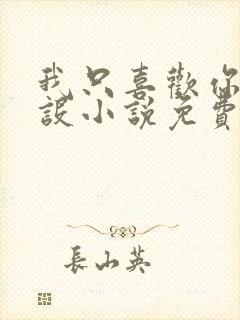 我只喜歡你
設小說免費
長山英